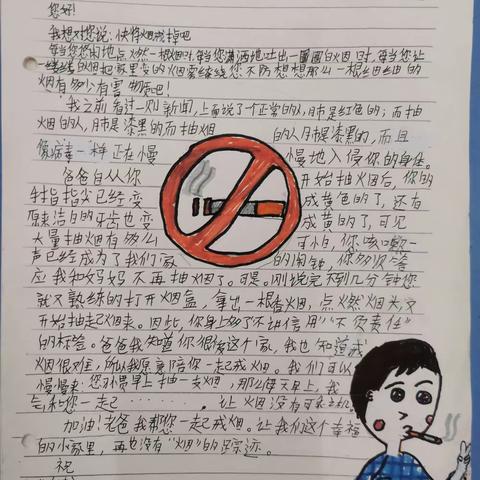 您好!
我想对您说:快将烟戒掉吧
每当您悠闲地点燃一根烟时,每当您潇洒地吐出一圈圈白烟时,每当您让
一缕缕白烟把家里变的烟雾缭绕,您不防想想那么一根细细的
烟有多少有害物质吧!
我之前看过一则新闻,上面说了个正常的人,肺是红色的;而抽
烟的人,肺是漆黑的而抽烟 的人肺是漆黑的,而且
像病毒一样正在慢 慢地入侵你的身体。
爸爸自从你 开始抽烟后,你的
手指指尖已经变 成黄色的了,还有
原来洁白的牙齿也变 成黄的了,可见
大量抽烟有多么 可怕,你咳嗽
声已经成为了我们家 的闹钟,你多次答
应我和妈妈不再抽烟了。可是。刚说完不到几分钟您
就又熟练的打开烟盒,拿出一根香烟,点燃烟头又
开始抽起烟来。因此,你身上多了"不讲信用""不负责任"
的标签。爸爸我知道你很爱这个家,我也知道戒
烟很难,所以我愿意陪你一起戒烟。我们可以
慢慢来 您习惯早上抽一支烟,那么每天早上,我
和您一起 让烟没有可乘之机
加油!老爸我帮您一起戒烟。让我们这个幸福
的小家里,再也没有"烟"的踪迹。
祝